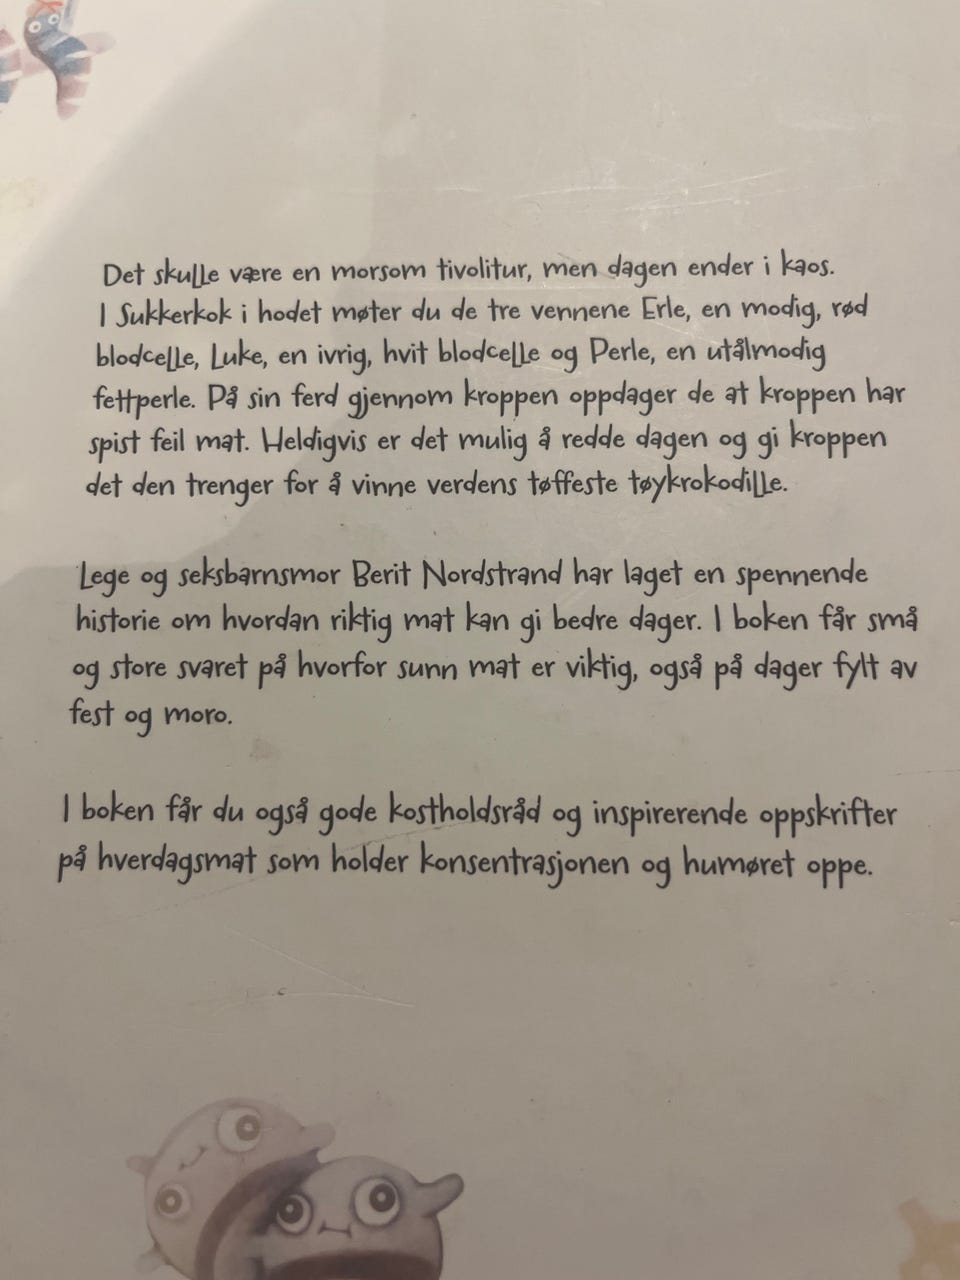 Det skulle være en morsom tivolitur, men dagen ender i kaos.
I Sukkerkok i hodet møter du de tre vennene Erle, en modig, rød
blodcelle, Luke, en ivrig, hvit blodcelle og Perle, en utålmodig
fettperle. På sin ferd gjennom kroppen oppdager de at kroppen har
spist feil mat. Heldigvis er det mulig å redde dagen og gi kroppen
det den trenger for å vinne verdens tøffeste tøykrokodille.
Lege og seksbarnsmor Berit Nordstrand har laget en spennende
historie om hvordan riktig mat kan gi bedre dager. I boken får små
og store svaret på hvorfor sunn mat er viktig, også på dager fylt av
fest og moro.
I boken får du også gode kostholdsråd og inspirerende oppskrifter
på hverdagsmat som holder konsentrasjonen og humøret oppe.